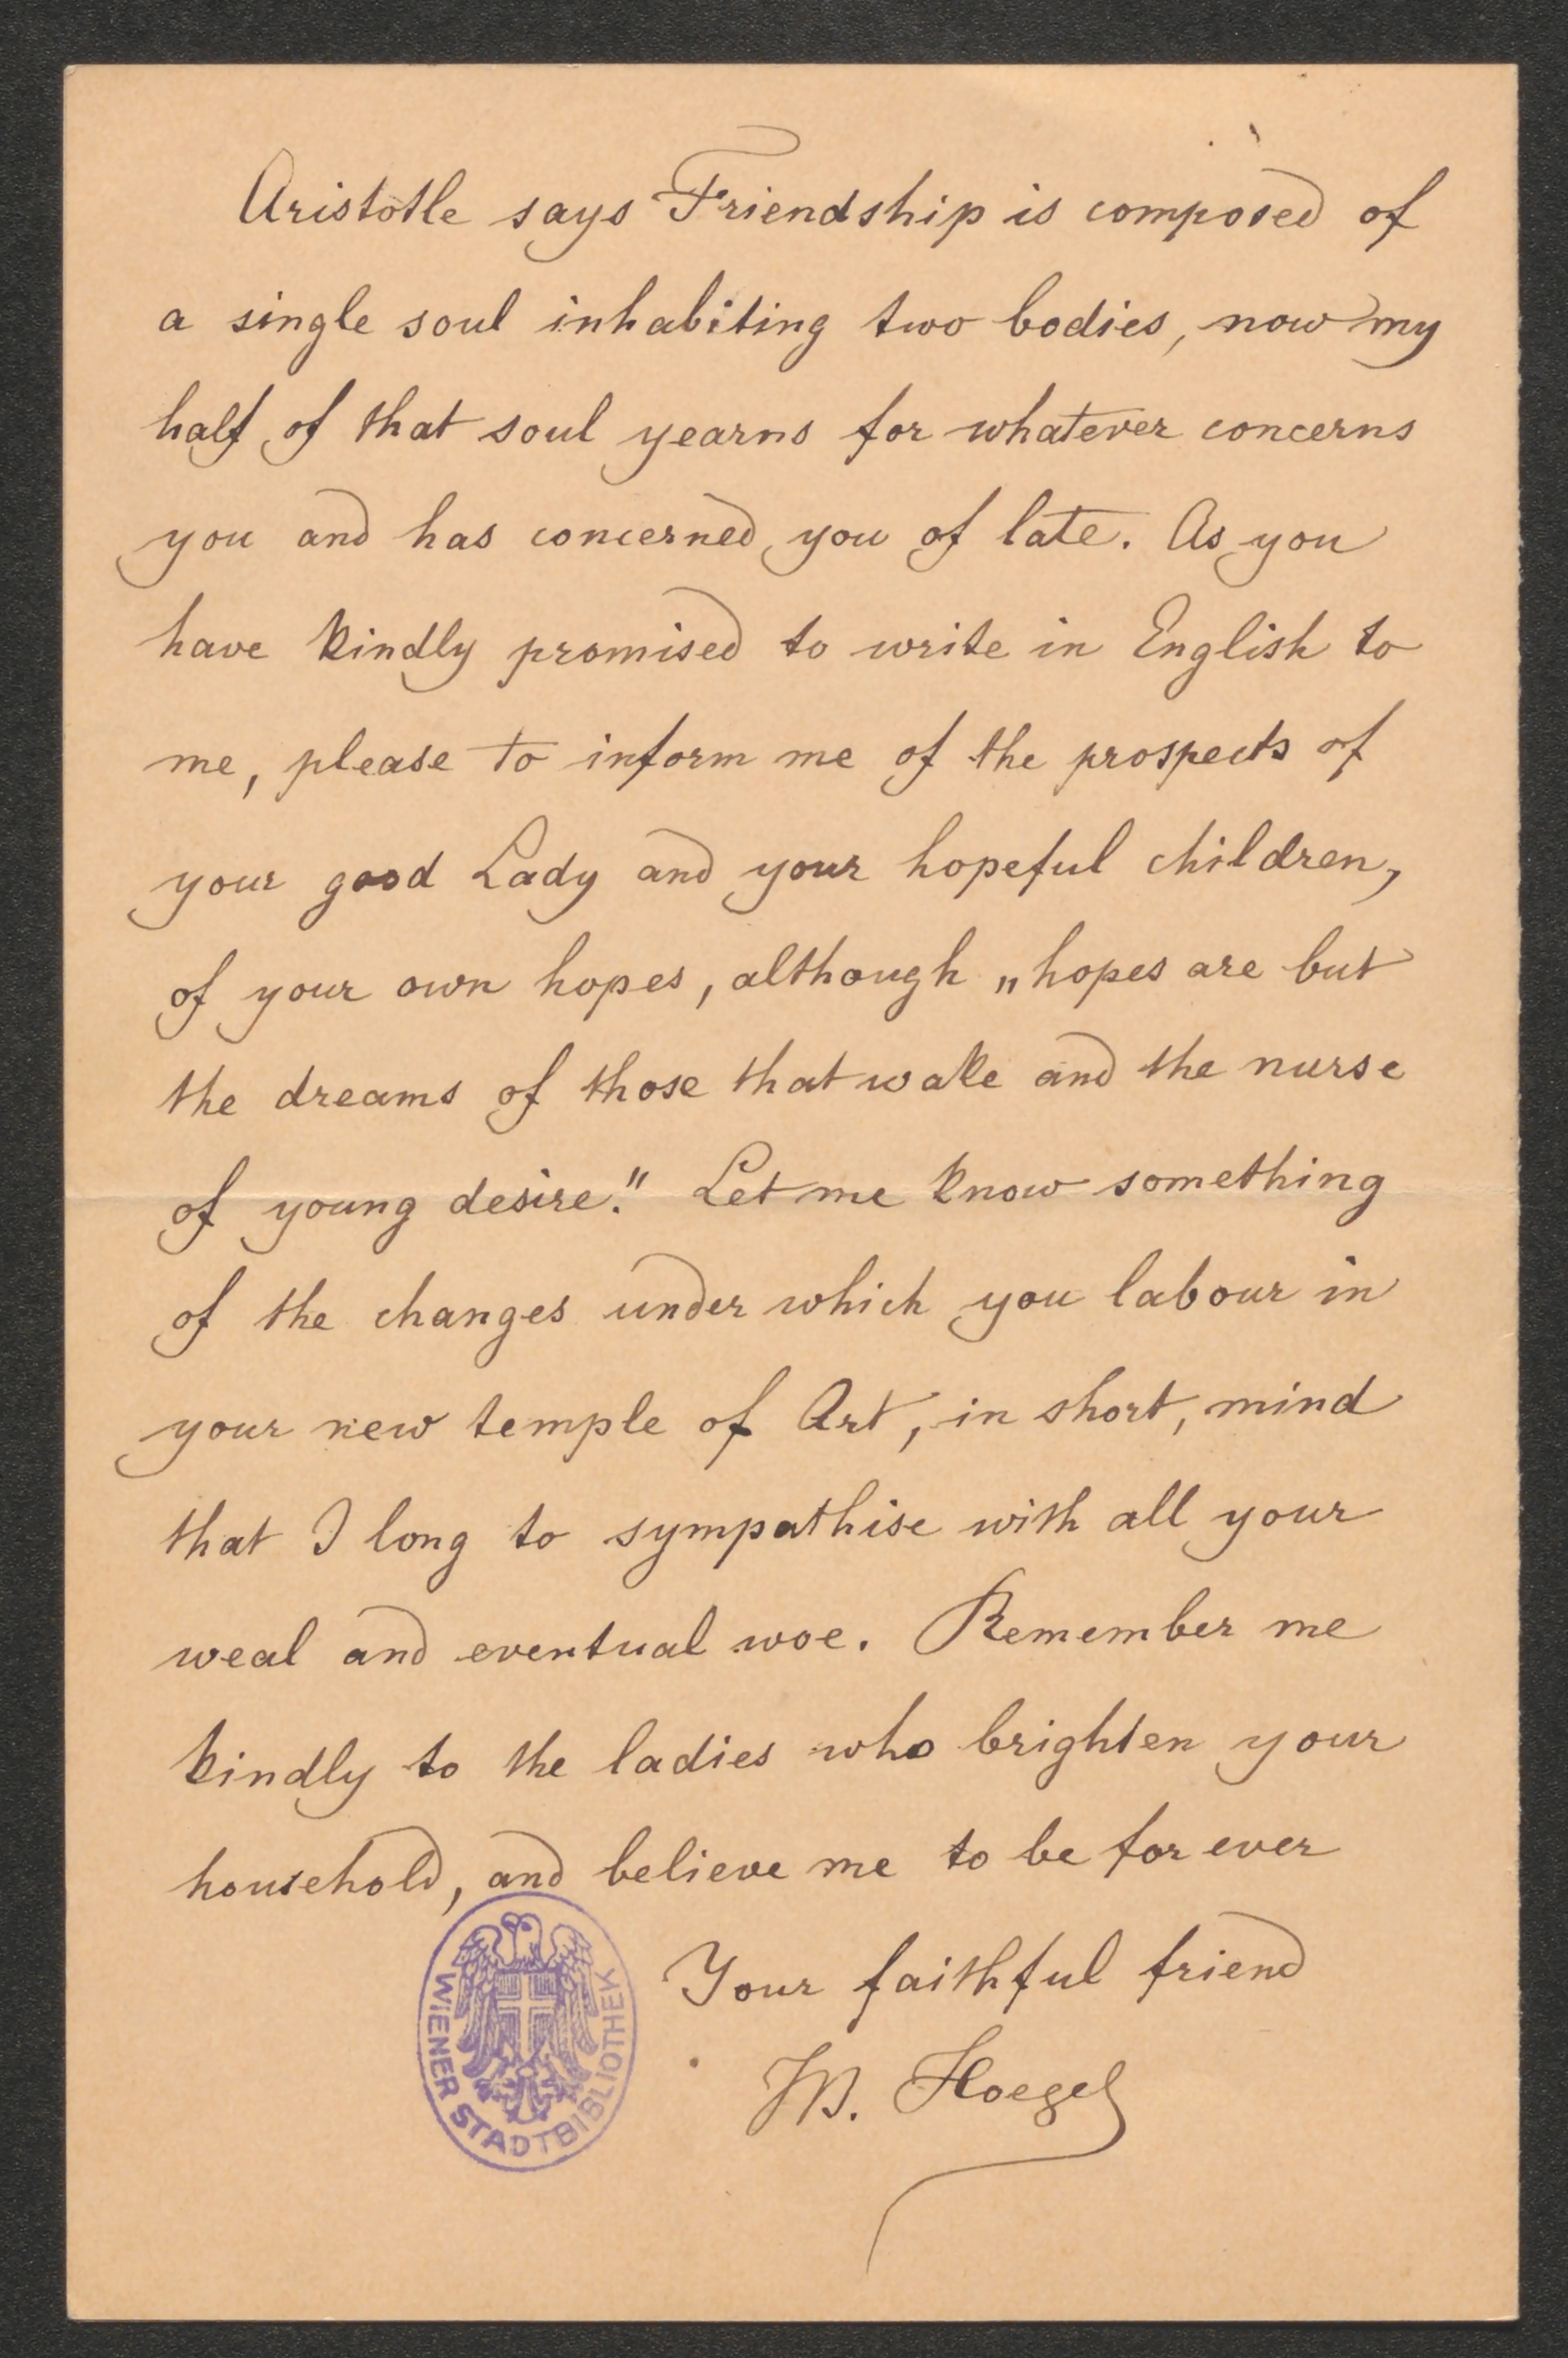 Aristotle says Friendship is composed of
a single soul inhabiting two bodies, now my
half of that soul yearns for whatever concerns
you and has concerned you of late. As you
have kindly promised to write in English to
me, please to inform me of the prospects of
your good Lady and your hopeful children,
of your own hopes, although „hopes are but
the dreams of those that wake and the nurse
of young desire." Let me know something
of the changes under which you labour in
your new temple of Art, in short, mind
that I long to sympathise with all your
weal and eventual woe. Remember me
kindly to the ladies who brighten your
household, and believe me to be for ever
Your faithful friend
W. Hoegel
WIENER STADTBIBLIOTHEK